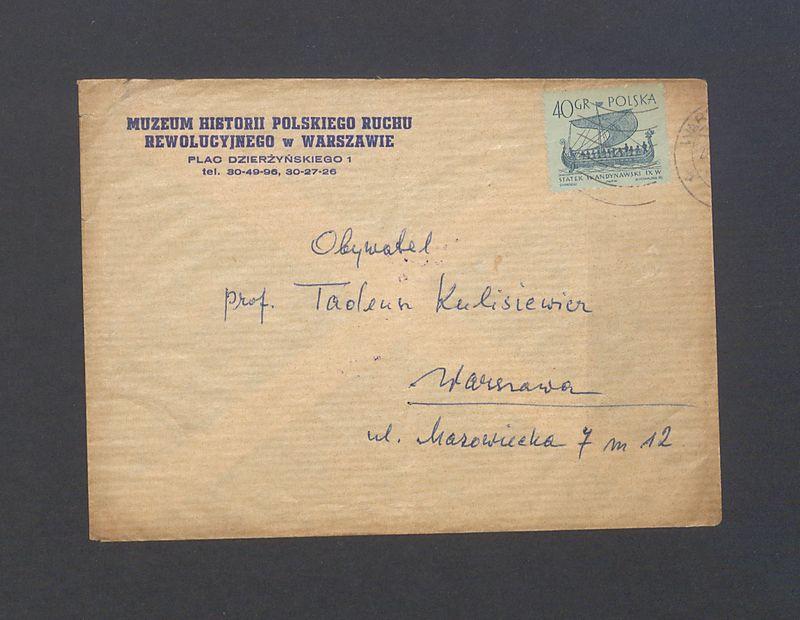 MUZEUM HISTORII POLSKIEGO RUCHU
REWOLUCYJNEGO w WARSZAWIE
PLAC DZIERŻYŃSKIEGO 1
tel. 30-49-96, 30-27-26
40GR POLSKA
STATEK SKANDYNAWSKI IX W
Obywatel
prof. Tadeusz Kulisiewicz
Warszawa
ul. Mazowiecka 7 m 12